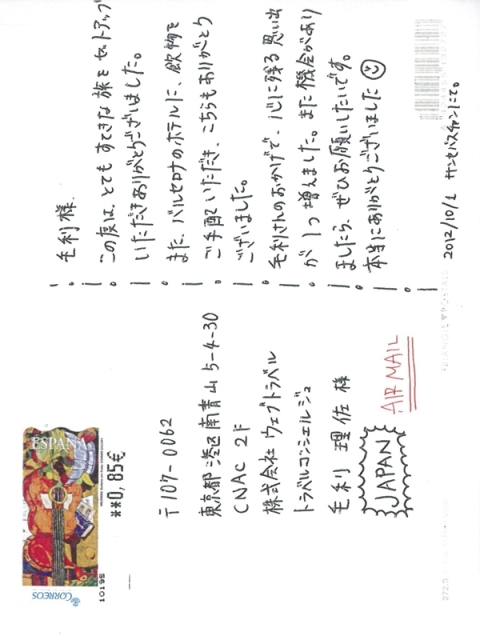 毛利様
この度は、とても すてきな 旅を セットアップ
いただきありがとうございました。
また、バルセロナのホテルに、飲物を
ご手配いただき、こちらもありがとう
ございました。
毛利さんのおかげで、心に残る 思い出
が 1つ 増えました。また機会があり
ましたら、ぜひお願いしたいです。
本当にありがとうございました
2012/10/2 サンセバスチャンにて。
ESPAÑA
**0,85€
CORREOS
10195
〒107-0062
東京都 港区 南青山 5-4-30
CNAC 2F
株式会社 ウェブトラベル
トラベルコンシェルジュ
毛利 理佐 様
JAPAN
AIR MAIL